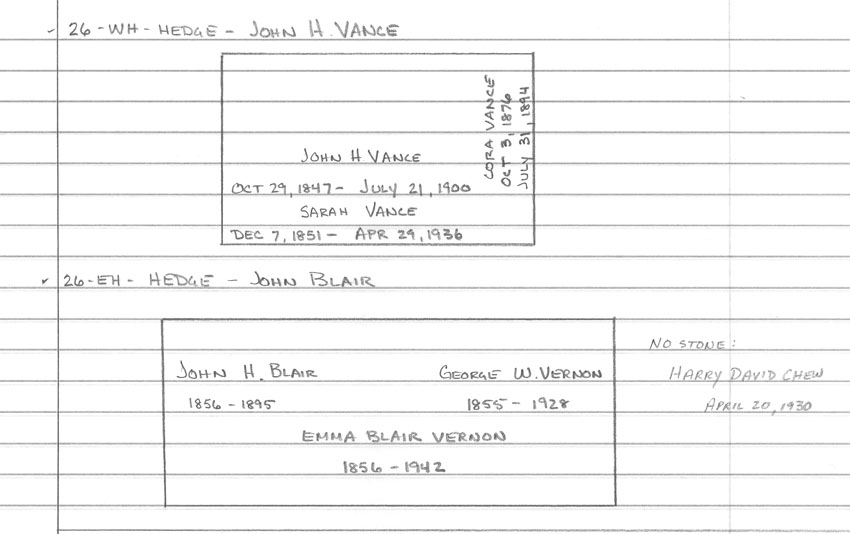 ✓ 26-WH-HEDGE - JOHN H. VANCE
CORA VANCE
OCT 3, 1876
JULY 31, 1894
JOHN H VANCE
OCT 29, 1847- JULY 21, 1900
SARAH VANCE
DEC 7, 1851- APR 29, 1936
✓ 26-EH- HEDGE - JOHN BLAIR
JOHN H. BLAIR
1856-1895
GEORGE W. VERNON
1855-1928
EMMA BLAIR VERNON
1856-1942
NO STONE:
HARRY DAVID CHEW
APRIL 20, 1930